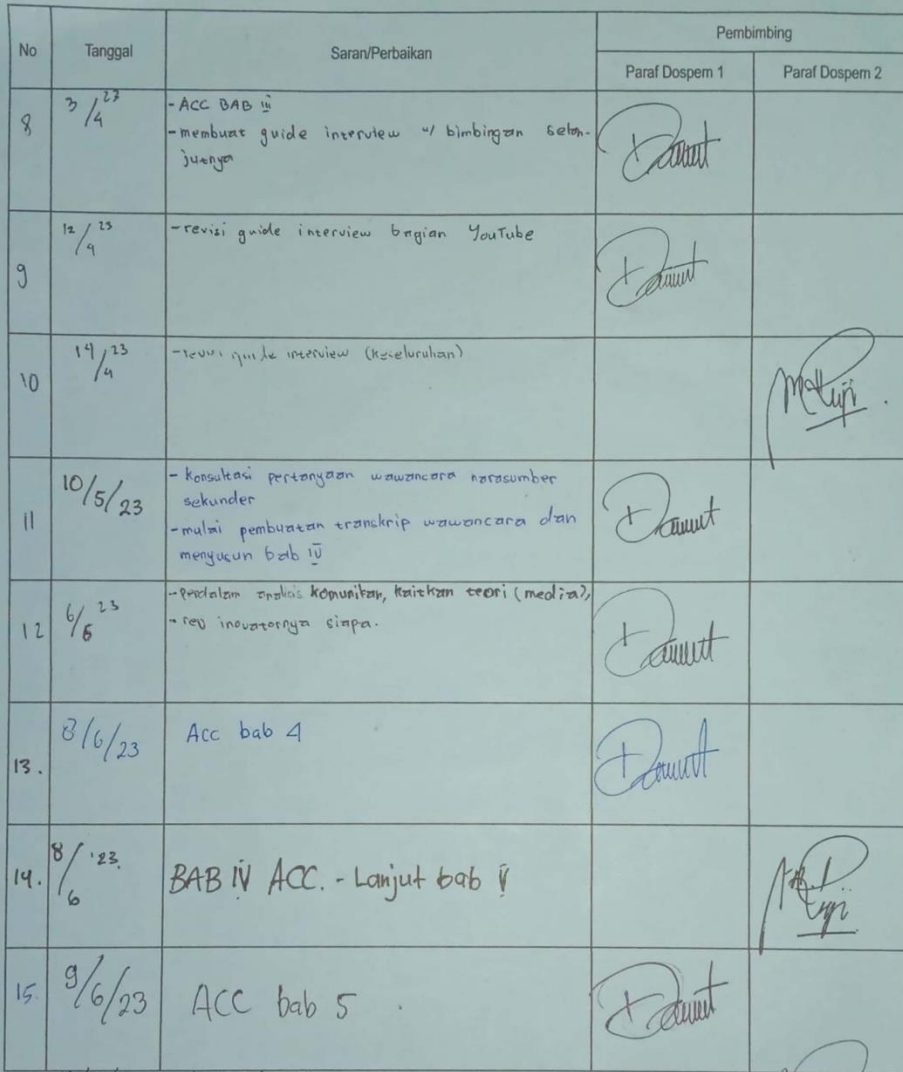 No Tanggal Saran/Perbaikan Pembimbing
Paraf Dospem 1 Paraf Dospem 2
8 3/4 23 - ACC BAB III
- membuat guide interview u/ bimbingan selan-
jutnya
9 12/4 23 - revisi guide interview bagian YouTube
10 14/4 23 - revisi guide interview (keseluruhan)
11 10/5/23 - Konsultasi pertanyaan wawancara narasumber
sekunder
- mulai pembuatan transkrip wawancara dan
menyusun bab IV
12 6/6 23 - Perdalam analisis komunikan, kaitkan teori (media),
- rev inovatornya siapa.
13. 8/6/23 Acc bab 4
14. 8/6 '23. BAB IV ACC. - Lanjut bab V
15. 9/6/23 ACC bab 5